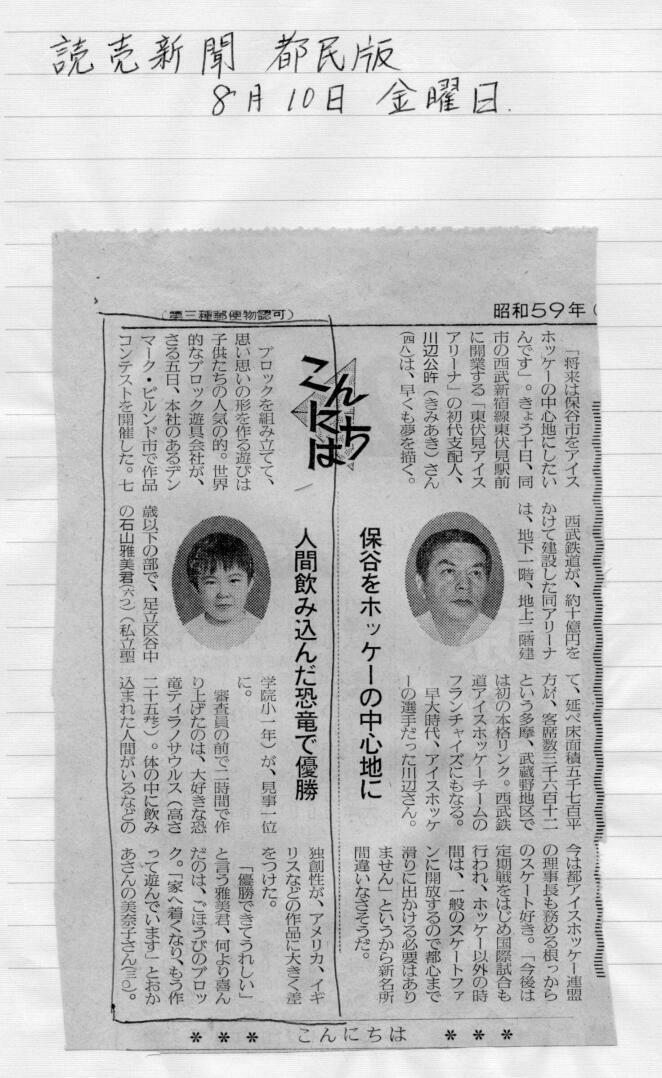 読売新聞 都民版
8月10日 金曜日.
昭和59年（
（第三種郵便物認可）
こんにちは
保谷をホッケーの中心地に
「将来は保谷市をアイス
ホッケーの中心地にしたい
んです」。きょう十日、同
市の西武新宿線東伏見駅前
に開業する「東伏見アイス
アリーナ」の初代支配人、
川辺公昨（きみあき）さん
（四八）は、早くも夢を描く。
西武鉄道が、約十億円を
かけて建設した同アリーナ
は、地下一階、地上二階建
て、延べ床面積五千七百平
方㍍、客席数三千六百十二
という多摩、武蔵野地区で
は初の本格リンク。西武鉄
道アイスホッケーチームの
フランチャイズにもなる。
早大時代、アイスホッケ
ーの選手だった川辺さん。
今は都アイスホッケー連盟
の理事長も務める根っから
のスケート好き。「今後は
定期戦をはじめ国際試合も
行われ、ホッケー以外の時
間は、一般のスケートファ
ンに開放するので都心まで
滑りに出かける必要はあり
ません」というから新名所
間違いなさそうだ。
人間飲み込んだ恐竜で優勝
ブロックを組み立てて、
思い思いの形を作る遊びは
子供たちの人気の的。世界
的なブロック遊具会社が、
さる五日、本社のあるデン
マーク・ビルンド市で作品
コンテストを開催した。七
歳以下の部で、足立区谷中
の石山雅美君（六つ）（私立聖
学院小一年）が、見事一位
に。
審査員の前で二時間で作
り上げたのは、大好きな恐
竜ティラノサウルス（高さ
二十五㌢）。体の中に飲み
込まれた人間がいるなどの
独創性が、アメリカ、イギ
リスなどの作品に大きく差
をつけた。
「優勝できてうれしい」
と言う雅美君、何より喜ん
だのは、ごほうびのブロッ
ク。「家へ着くなり、もう作
って遊んでいます」とおか
あさんの美奈子さん（三〇）。
＊ ＊ ＊ こんにちは ＊ ＊ ＊